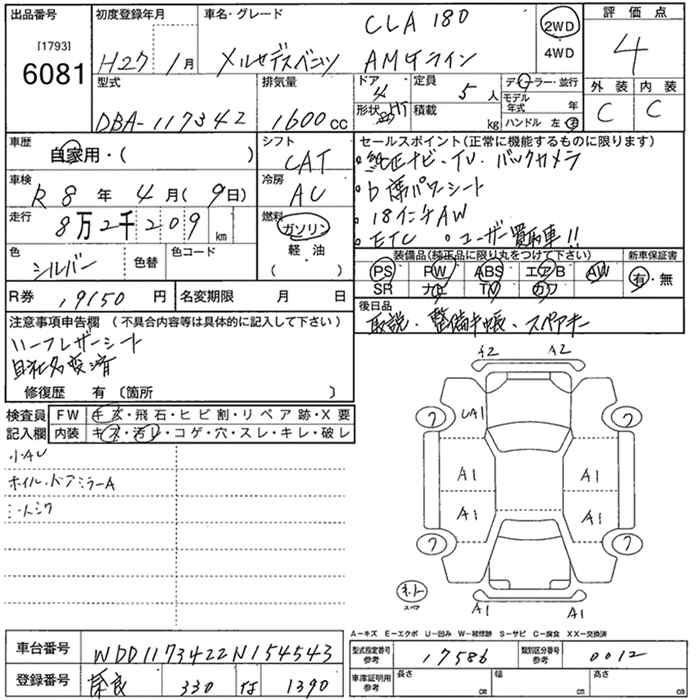 出品番号
[1793]
6081
初度登録年月
H27年 1月
車名・グレード
CLA 180
メルセデスベンツ AMGライン
2WD
4WD
評価点
4
外装 内装
C C
型式
DBA-117342
排気量
1600cc
ドア 4
形状
定員 5人
積載 kg
ディーラー・並行
モデル年式 年
ハンドル 左 右
車歴
自家用・( )
シフト
CAT
車検
R 8年 4月 (9日)
冷房
AC
走行
8万2千209km
燃料
ガソリン
軽油
( )
色
シルバー
色替
色コード
R券 19150円
名変期限 月 日
セールスポイント(正常に機能するものに限ります)
・純正ナビ・TV・バックカメラ
・D席パワーシート
・18インチAW
・ETC ・ユーザー買取車!!
装備品(純正品に限り丸をつけて下さい)
PS PW ABS エアB AW
SR ナビ TV カワ
新車保証書
有・無
後日品
取説・整備手帳・スペアキー
注意事項申告欄(不具合内容等は具体的に記入して下さい)
ハーフレザーシート
自社名変済
修復歴 有(箇所 )
検査員記入欄
FW キズ・飛石・ヒビ割・リペア跡・X要
内装 キズ・汚レ・コゲ・穴・スレ・キレ・破レ
小AU
ホイル・ドアミラーA
シートシワ
A2 A2
7 7
UA1
A1 A1
A1 A1
7 7
スペア
A1 A1
A-キズ E-エクボ U-凹み W-補修跡 S-サビ C-腐食 XX-交換済
車台番号
WDD1173422N154543
登録番号
奈良 330 は 1390
型式指定番号 参考
17586
類別区分番号 参考
0012
車庫証明用 参考
長さ cm
幅 cm
高さ cm